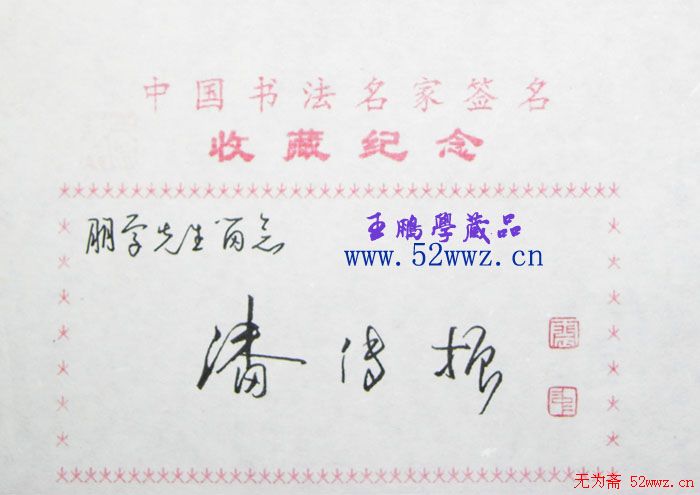 中国书法名家签名
收藏纪念
朋学先生留念
王鹏學藏品
www.52wwz.cn
潘传振
无为斋 52wwz.cn